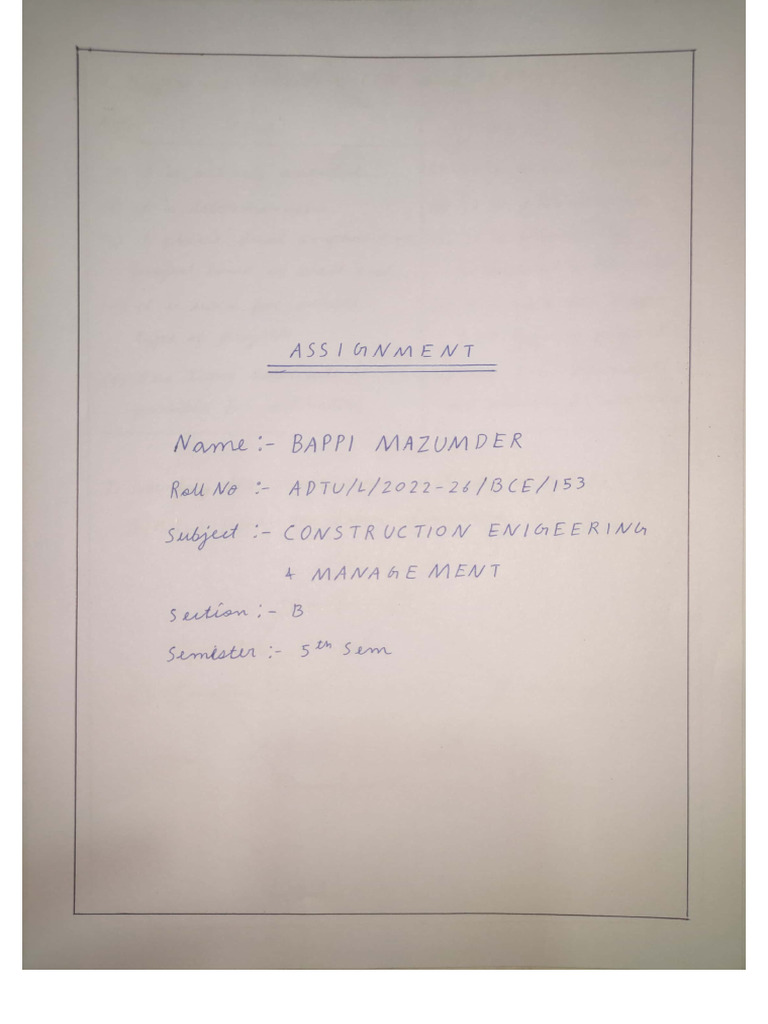 ASSIGNMENT
Name :- BAPPI MAZUMDER
Roll No :- ADTU/L/2022-26/BCE/153
Subject :- CONSTRUCTION ENIGEERING
& MANAGEMENT
Section :- B
Semester :- 5th Sem